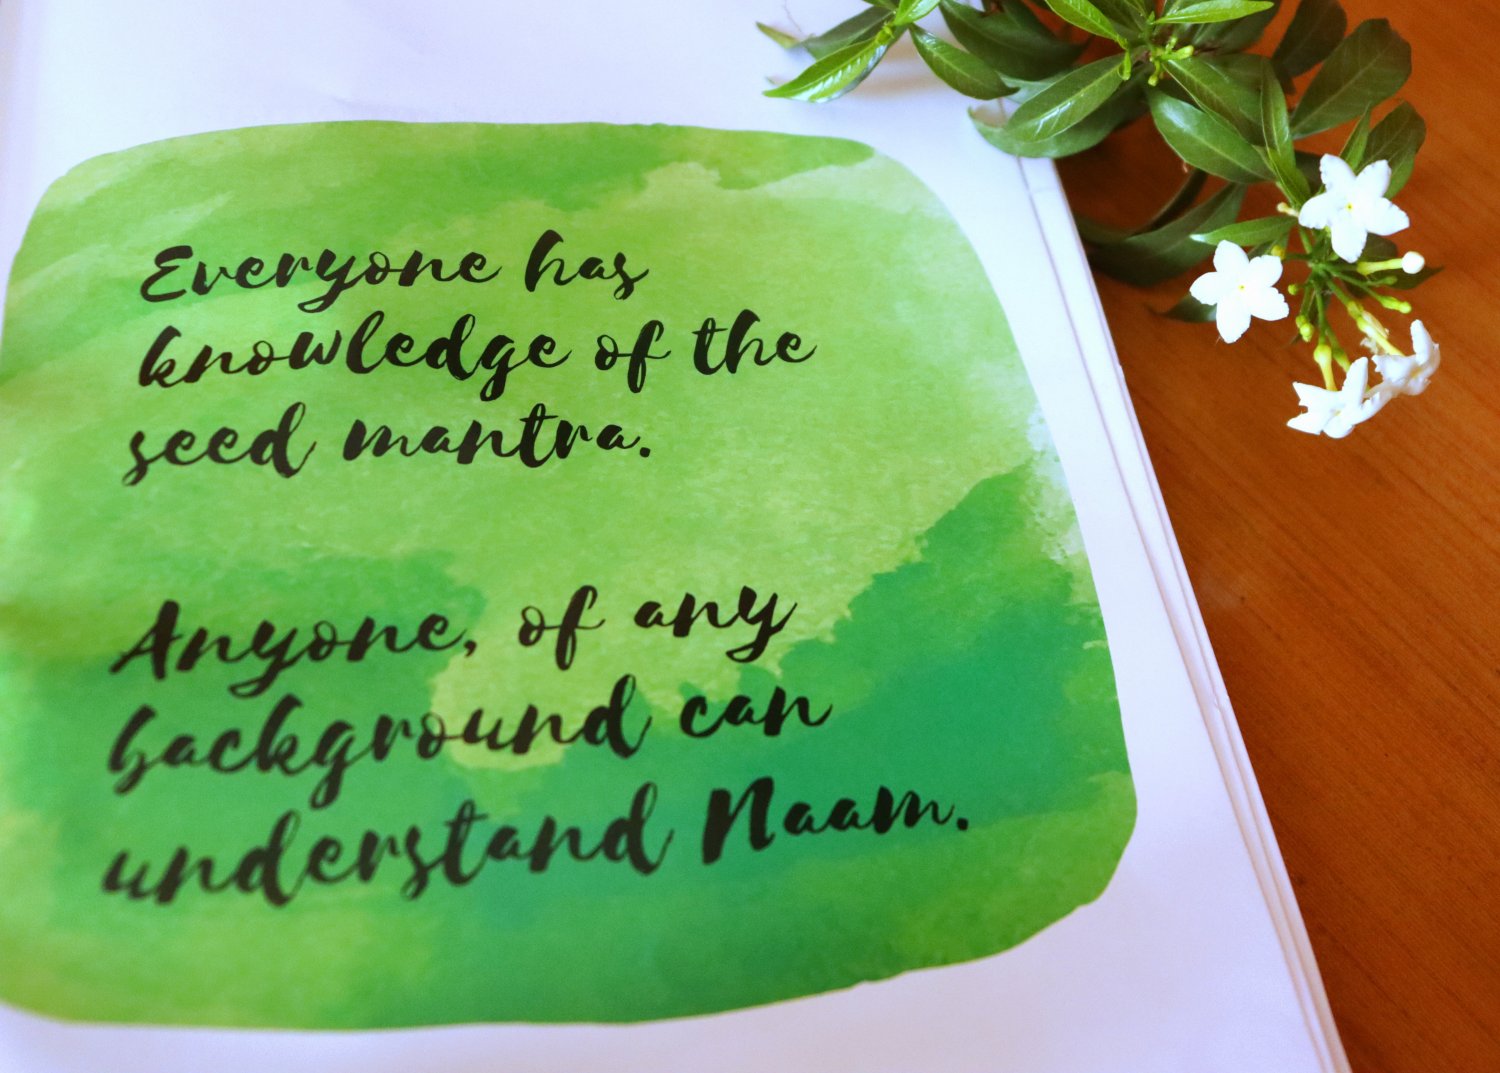 Everyone has
knowledge of the
seed mantra.
Anyone, of any
background can
understand Naam.